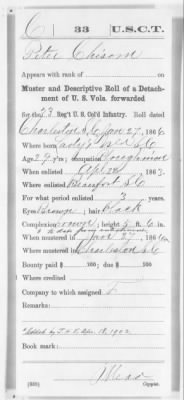 C 33 U.S.C.T.
Peter Chisom
Appears with rank of
Muster and Descriptive Roll of a Detach-
ment of U. S. Vols. forwarded
for the 33 Reg't U. S. Col'd Infantry. Roll dated
Charleston S C Jan 27, 1866
Where born S C
Age 29 y'rs; occupation Ploughman
When enlisted 1863
Where enlisted Beaufort S C
For what period enlisted 3 years.
Eyes Brown; hair Black
Complexion Brown; height 5 ft. 6 in.
When mustered in Jan 27, 1866
Where mustered in Charleston S C
Bounty paid $ 100; due $ 100
Where credited
Company to which assigned
Remarks:
Apr. 18, 1902
Book mark:
Mead
Copyist.